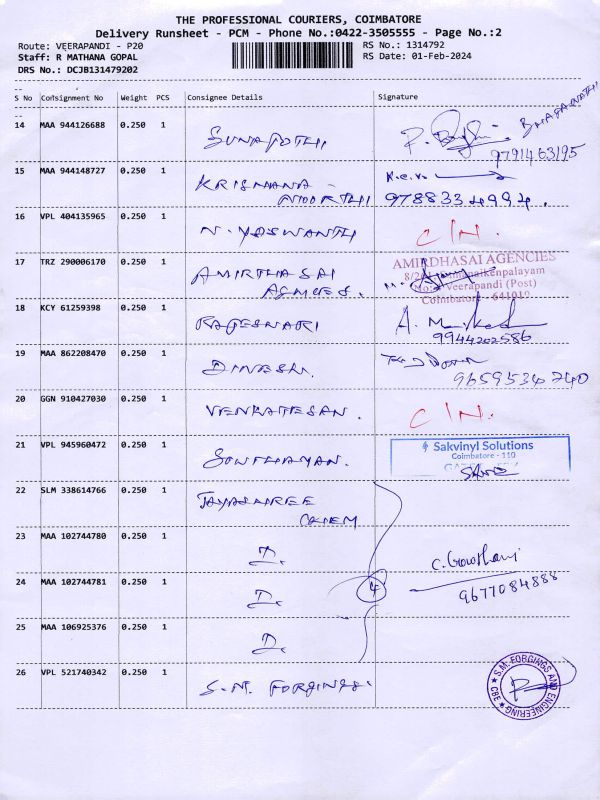 THE PROFESSIONAL COURIERS, COIMBATORE
Delivery Runsheet - PCM - Phone No.:0422-3505555 - Page No.:2
Route: VEERAPANDI - P20
RS No.: 1314792
Staff: R MATHANA GOPAL
RS Date: 01-Feb-2024
DRS No.: DCJB131479202
S No Consignment No Weight PCS Consignee Details Signature
14 MAA 944126688 0.250 1
9791463195
15 MAA 944148727 0.250 1 KRISHANA -
MOORTHI 9788334994.
16 VPL 404135965 0.250 1 N. YOSWANTH C IN.
17 TRZ 290006170 0.250 1 AMIRTHA SAI
AMIRDHASAI AGENCIES
Veerapandi (Post)
Coimbatore - 641019
18 KCY 61259398 1 0.250 RAJESWARI
9944202586
19 MAA 862208470 0.250 1 DINESH.
9659534740
20 GGN 910427030 0.250 1 VENKATESAN. C IN.
21 VPL 945960472 0.250 1
Sakvinyl Solutions
Coimbatore - 110
22 SLM 338614766 0.250 1 JAYASHREE
CHEM
23 MAA 102744780 0.250 1 D.
C. Gowthami
24 MAA 102744781 0.250 1 D. 4
9677084888
25 MAA 106925376 0.250 1 D.
26 VPL 521740342 0.250 1 S.M. FORGINGS.
S.M. FORGINGS AND ENGINEERING
CBE